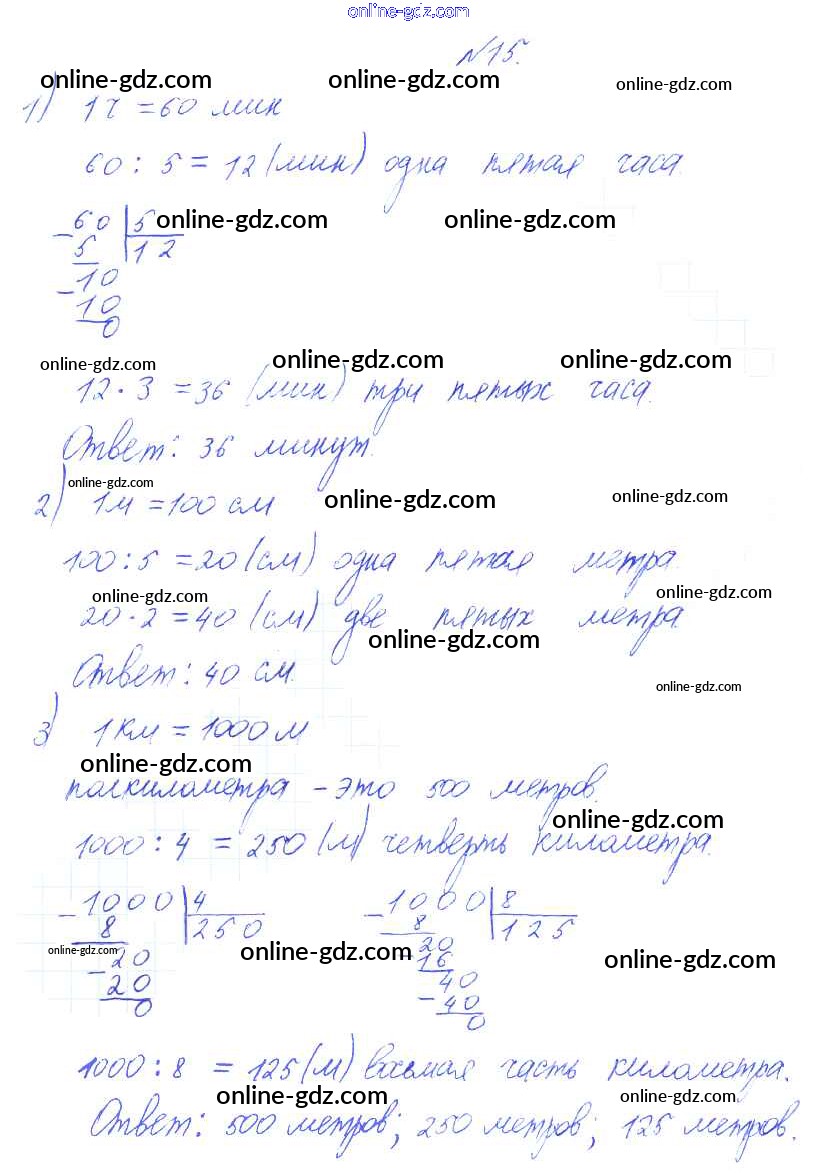 online-gdz.com
№15.
online-gdz.com online-gdz.com online-gdz.com
1) 1ч = 60 мин
60 : 5 = 12 (мин) одна пятая часа.
- 60 | 5 online-gdz.com online-gdz.com
5 12
- 10
10
0
online-gdz.com online-gdz.com online-gdz.com
12 · 3 = 36 (мин) три пятых часа.
Ответ: 36 минут.
online-gdz.com online-gdz.com online-gdz.com
2) 1м = 100 см
100 : 5 = 20 (см) одна пятая метра.
online-gdz.com online-gdz.com
20 · 2 = 40 (см) две пятых метра.
online-gdz.com
Ответ: 40 см.
online-gdz.com
3) 1 км = 1000 м
online-gdz.com
полкилометра - это 500 метров.
online-gdz.com
1000 : 4 = 250 (м) четверть километра.
- 1000 | 4 - 1000 | 8
8 250 8 125
online-gdz.com - 20 online-gdz.com - 20 online-gdz.com
20 16
0 - 40
40
0
1000 : 8 = 125 (м) восьмая часть километра.
online-gdz.com online-gdz.com
Ответ: 500 метров; 250 метров; 125 метров.